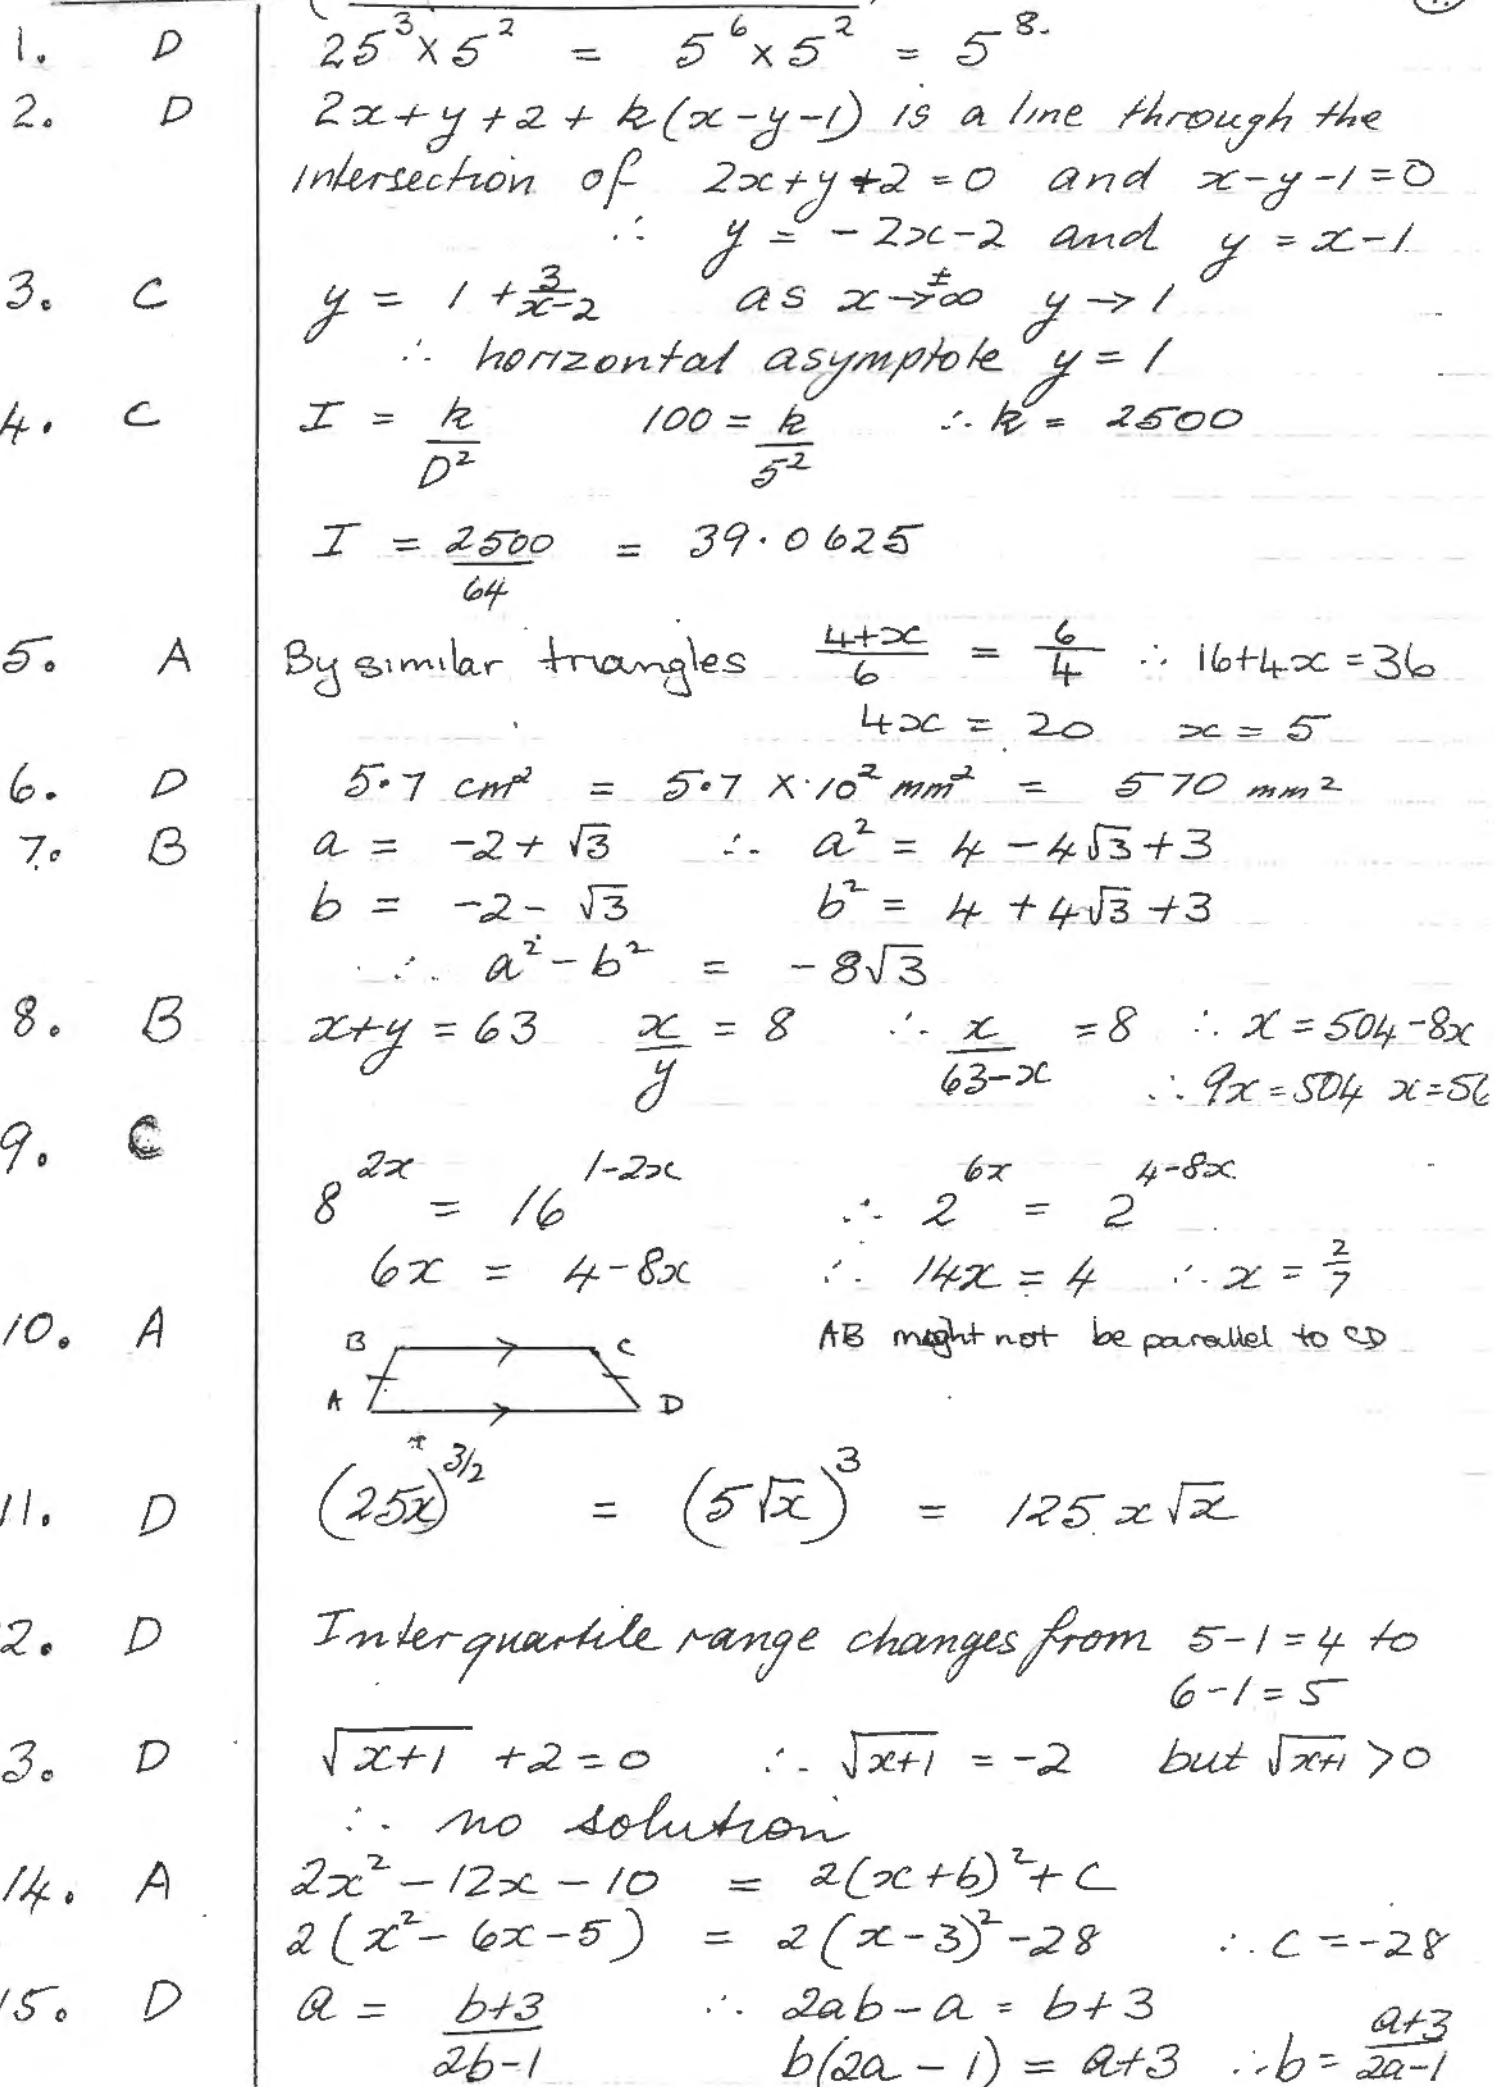 1. D 25³ × 5² = 5⁶ × 5² = 5⁸.
2. D 2x + y + 2 + k(x - y - 1) is a line through the
intersection of 2x + y + 2 = 0 and x - y - 1 = 0
∴ y = -2x - 2 and y = x - 1
3. C y = 1 + 3/(x-2) as x → ±∞ y → 1
∴ horizontal asymptote y = 1
4. C I = k/D² 100 = k/5² ∴ k = 2500
I = 2500/64 = 39.0625
5. A By similar triangles (4+x)/6 = 6/4 ∴ 16+4x = 36
4x = 20 x = 5
6. D 5.7 cm² = 5.7 × 10² mm² = 570 mm²
7. B a = -2 + √3 ∴ a² = 4 - 4√3 + 3
b = -2 - √3 b² = 4 + 4√3 + 3
∴ a² - b² = -8√3
8. B x+y = 63 x/y = 8 ∴ x/(63-x) = 8 ∴ x = 504 - 8x
∴ 9x = 504 x = 56
9. C
8^(2x) = 16^(1-2x) ∴ 2^(6x) = 2^(4-8x)
6x = 4 - 8x ∴ 14x = 4 ∴ x = 2/7
10. A B C AB might not be parallel to CD
A D
11. D (25x)^(3/2) = (5√x)³ = 125 x√x
2. D Interquartile range changes from 5-1 = 4 to
6-1 = 5
3. D √(x+1) + 2 = 0 ∴ √(x+1) = -2 but √(x+1) > 0
∴ no solution
14. A 2x² - 12x - 10 = 2(x+b)² + C
2(x² - 6x - 5) = 2(x-3)² - 28 ∴ C = -28
15. D a = (b+3)/(2b-1) ∴ 2ab - a = b+3
b(2a - 1) = a+3 ∴ b = (a+3)/(2a-1)